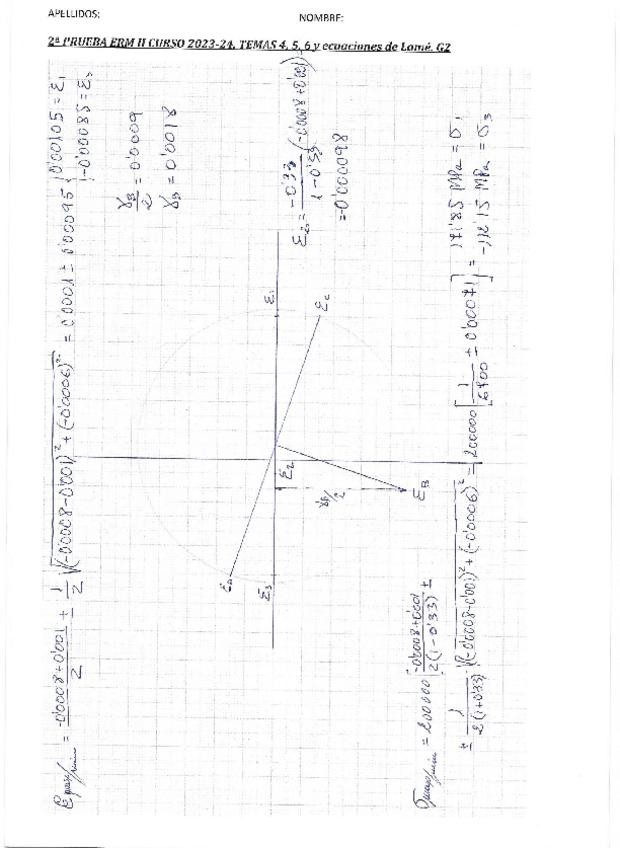 APELLIDOS: NOMBRE:
2ª PRUEBA ERM II CURSO 2023-24. TEMAS 4, 5, 6 y ecuaciones de Lamé. G2
ε máx/mín = (-0'0008+0'001)/2 ± 1/2 √((-0'0008-0'001)² + (-0'0006)²) = 0'0001 ± 0'00095 { 0'00105 = ε₁
-0'00085 = ε₃
γB/2 = 0'0009
γB = 0'0018
ε₂ = -0'33/(1-0'33) (-0'0008+0'001) =
= -0'000098
εa
ε₃
ε₂
γB/2
εB
ε₁
εc
σ máx/mín = 200000 [ (-0'0008+0'001)/(2(1-0'33)) ±
± 1/(2(1+0'33)) √((-0'0008-0'001)² + (-0'0006)²) ] = 200000 [ 1/6700 ± 0'00071 ] = 171'85 MPa = σ₁
-112'15 MPa = σ₃